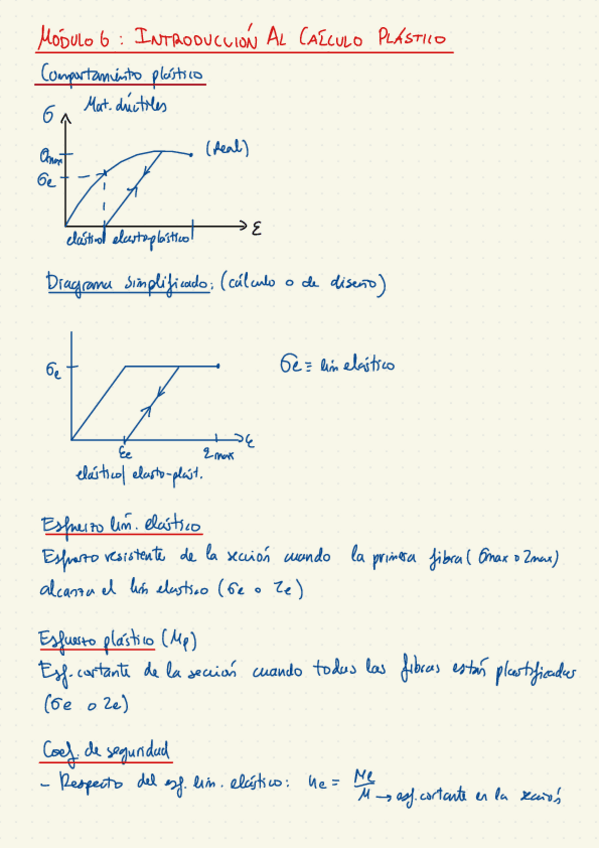 MÓDULO 6: INTRODUCCIÓN AL CÁLCULO PLÁSTICO
Comportamiento plástico
σ Mat. dúctiles
σmax (Real)
σe
ε
elástico elastoplástico
Diagrama simplificado: (cálculo o de diseño)
σe σe ≡ lím elástico
ε
εe εmax
elástico/ elasto-plást.
Esfuerzo lím. elástico
Esfuerzo resistente de la sección cuando la primera fibra (σmax o τmax)
alcanza el lím elástico (σe o τe)
Esfuerzo plástico (Mp)
Esf. cortante de la sección cuando todas las fibras están plastificadas
(σe o τe)
Coef. de seguridad
- Respecto del esf. lím. elástico: ne = Me/M → esf. cortante en la sección